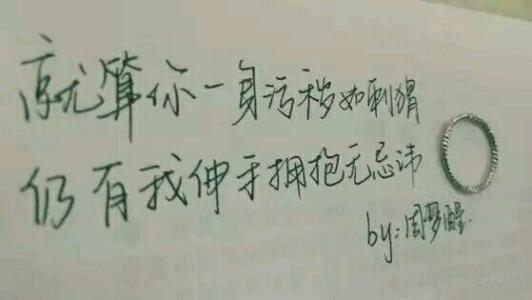 就算你一身污秽如刺猬
仍有我伸手拥抱无忌讳
by:周梦醒.